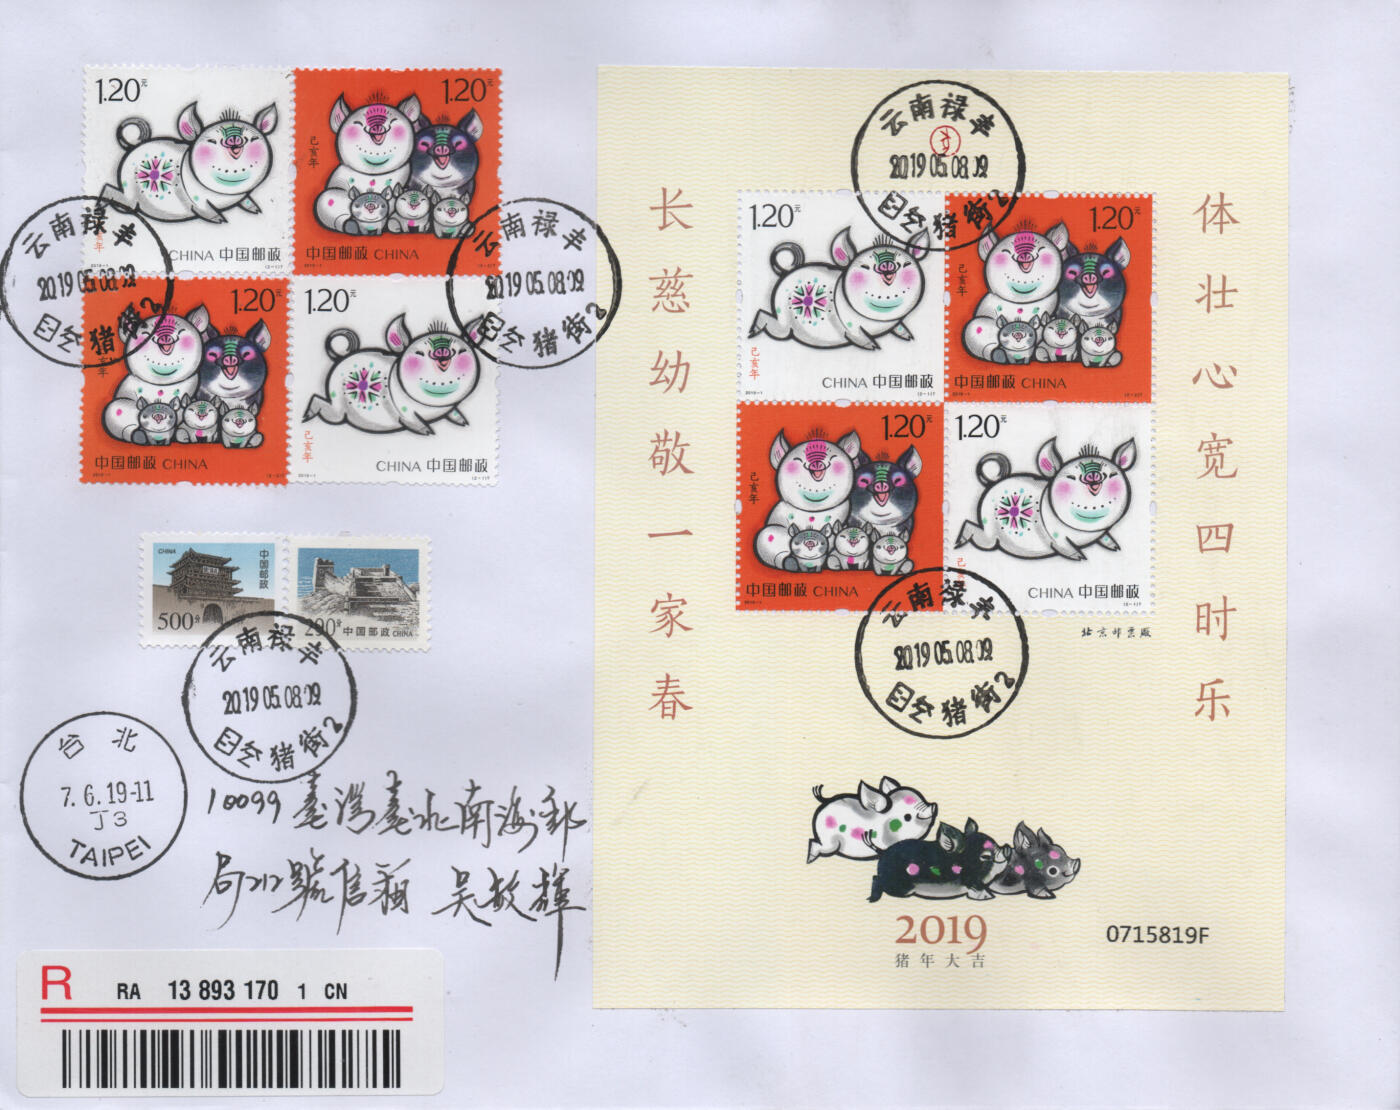 1.20元
己亥年
CHINA 中国邮政
2019-1
(2-1)T
1.20元
己亥年
中国邮政 CHINA
2019-1
(2-2)T
1.20元
中国邮政 CHINA
2019-1
1.20元
己亥年
CHINA 中国邮政
2019-1
(2-1)T
云南禄丰
2019.05.08.09
猪街2
云南禄丰
2019.05.08.09
猪街2
CHINA
中国邮政
500分
290分
中国邮政 CHINA
云南禄丰
2019.05.08.09
猪街2
台北
7.6.19-11
J3
TAIPEI
10099 臺灣臺北南海郵
局212號信箱 吴敏輝
R
RA 13 893 170 1 CN
长慈幼敬一家春
体壮心宽四时乐
云南禄丰
2019.05.08.09
猪街2
1.20元
己亥年
CHINA 中国邮政
2019-1
(2-1)T
1.20元
己亥年
中国邮政 CHINA
2019-1
(2-2)T
1.20元
己亥年
中国邮政 CHINA
2019-1
1.20元
CHINA 中国邮政
(2-1)T
北京邮票厂
云南禄丰
2019.05.08.09
猪街2
2019
猪年大吉
0715819F